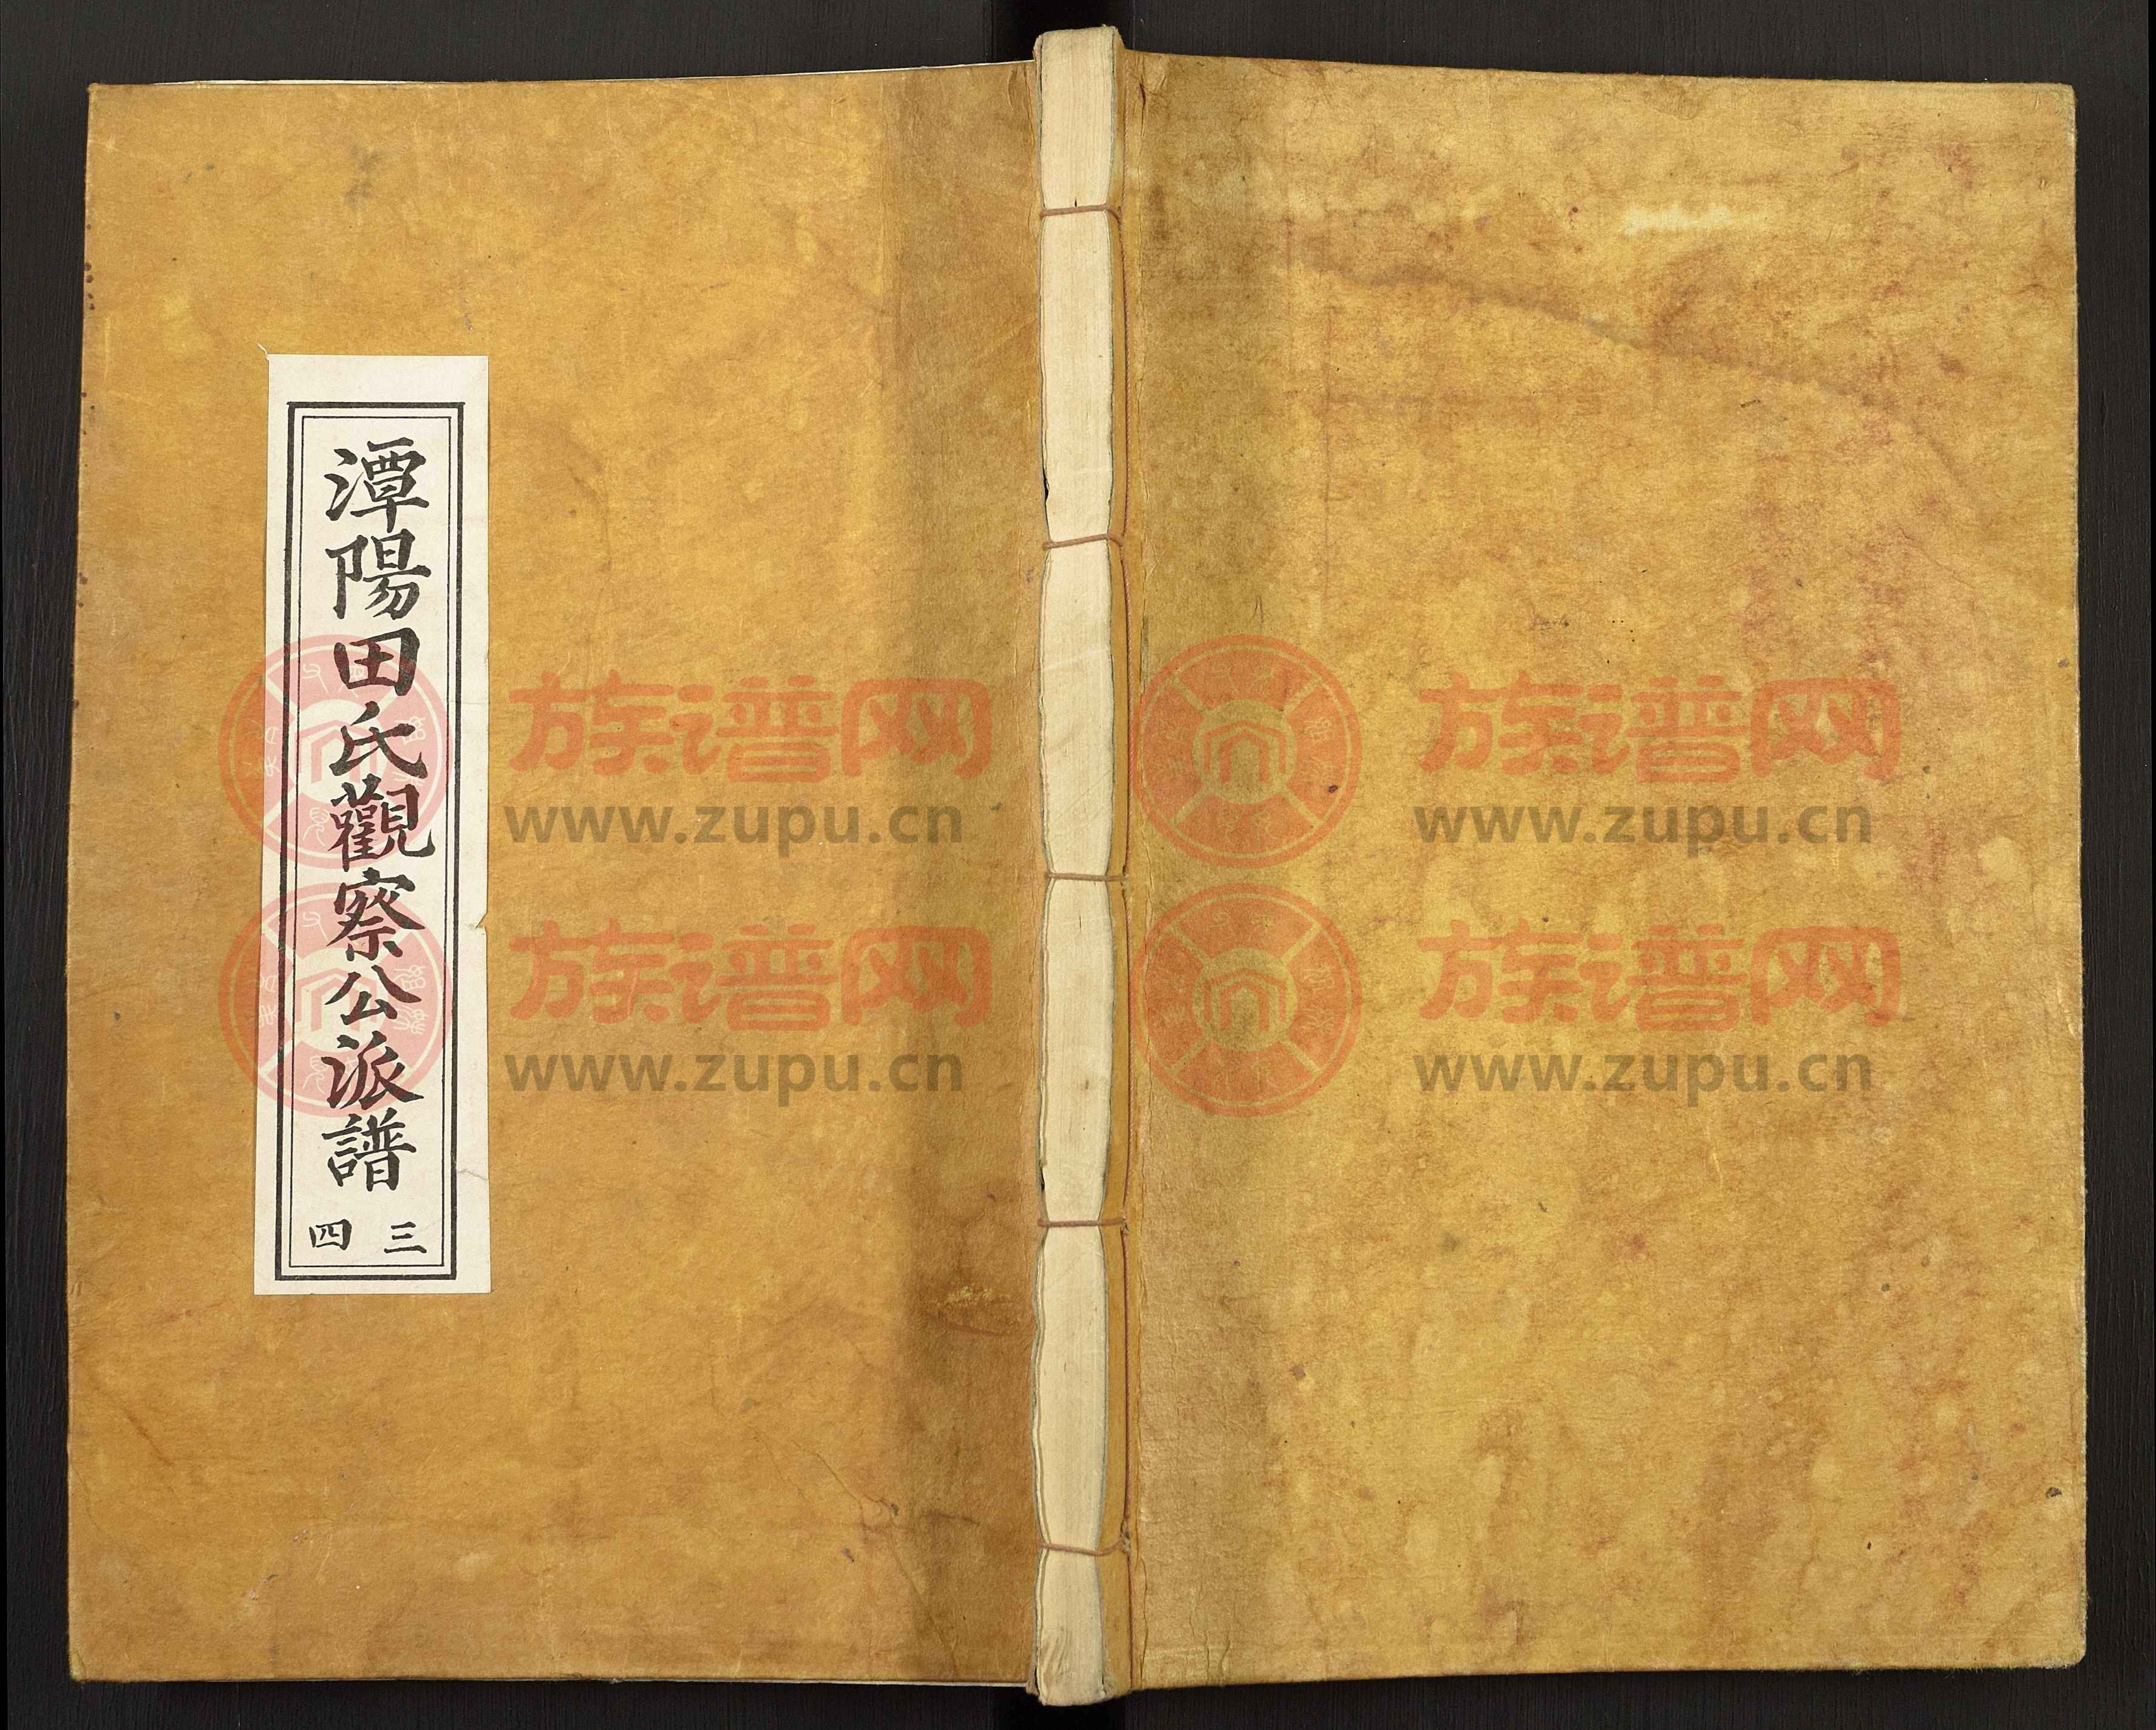 潭陽田氏觀察公派譜
三
四
族谱网
www.zupu.cn
族谱网
www.zupu.cn
族谱网
www.zupu.cn
族谱网
www.zupu.cn